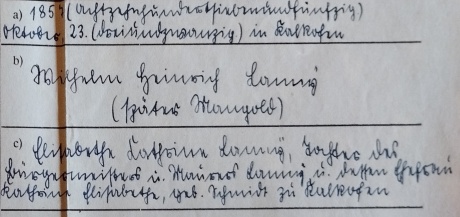 a) 1857 (achtzehnhundertsiebenundfünfzig)
Oktober, 23. (dreiundzwanzig) in Kalkofen
b)
Wilhelm Heinrich Lanny
(später Mangold)
c) Elisabethe Kathrine Lanny, Tochter des
Bürgermeisters u. Maurers Lanny u. dessen Ehefrau
Kathrine Elisabethe, geb. Schmidt zu Kalkofen